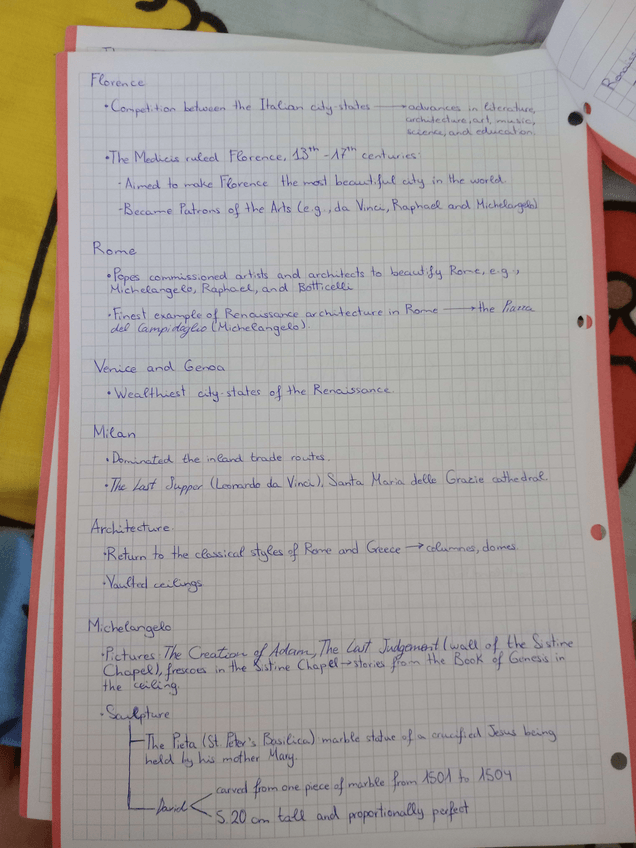 Florence
• Competition between the Italian city-states → advances in literature,
architecture, art, music,
science, and education.
• The Medicis ruled Florence, 13th - 17th centuries
- Aimed to make Florence the most beautiful city in the world
- Became Patrons of the Arts (e.g., da Vinci, Raphael and Michelangelo)
Rome
• Popes commissioned artists and architects to beautify Rome, e.g.,
Michelangelo, Raphael, and Botticelli
• Finest example of Renaissance architecture in Rome → the Piazza
del Campidoglio (Michelangelo).
Venice and Genoa
• Wealthiest city-states of the Renaissance
Milan
• Dominated the inland trade routes.
• The Last Supper (Leonardo da Vinci), Santa Maria delle Grazie cathedral
Architecture.
• Return to the classical styles of Rome and Greece → columnes, domes.
• Vaulted ceilings
Michelangelo
• Pictures The Creation of Adam, The Last Judgement (wall of the Sistine
Chapel), frescoes in the Sistine Chapel → stories from the Book of Genesis in
the ceiling.
• Sculpture
The Pieta (St. Peter's Basilica) marble statue of a crucified Jesus being
held by his mother Mary.
David
carved from one piece of marble from 1501 to 1504
5.20 cm tall and proportionally perfect